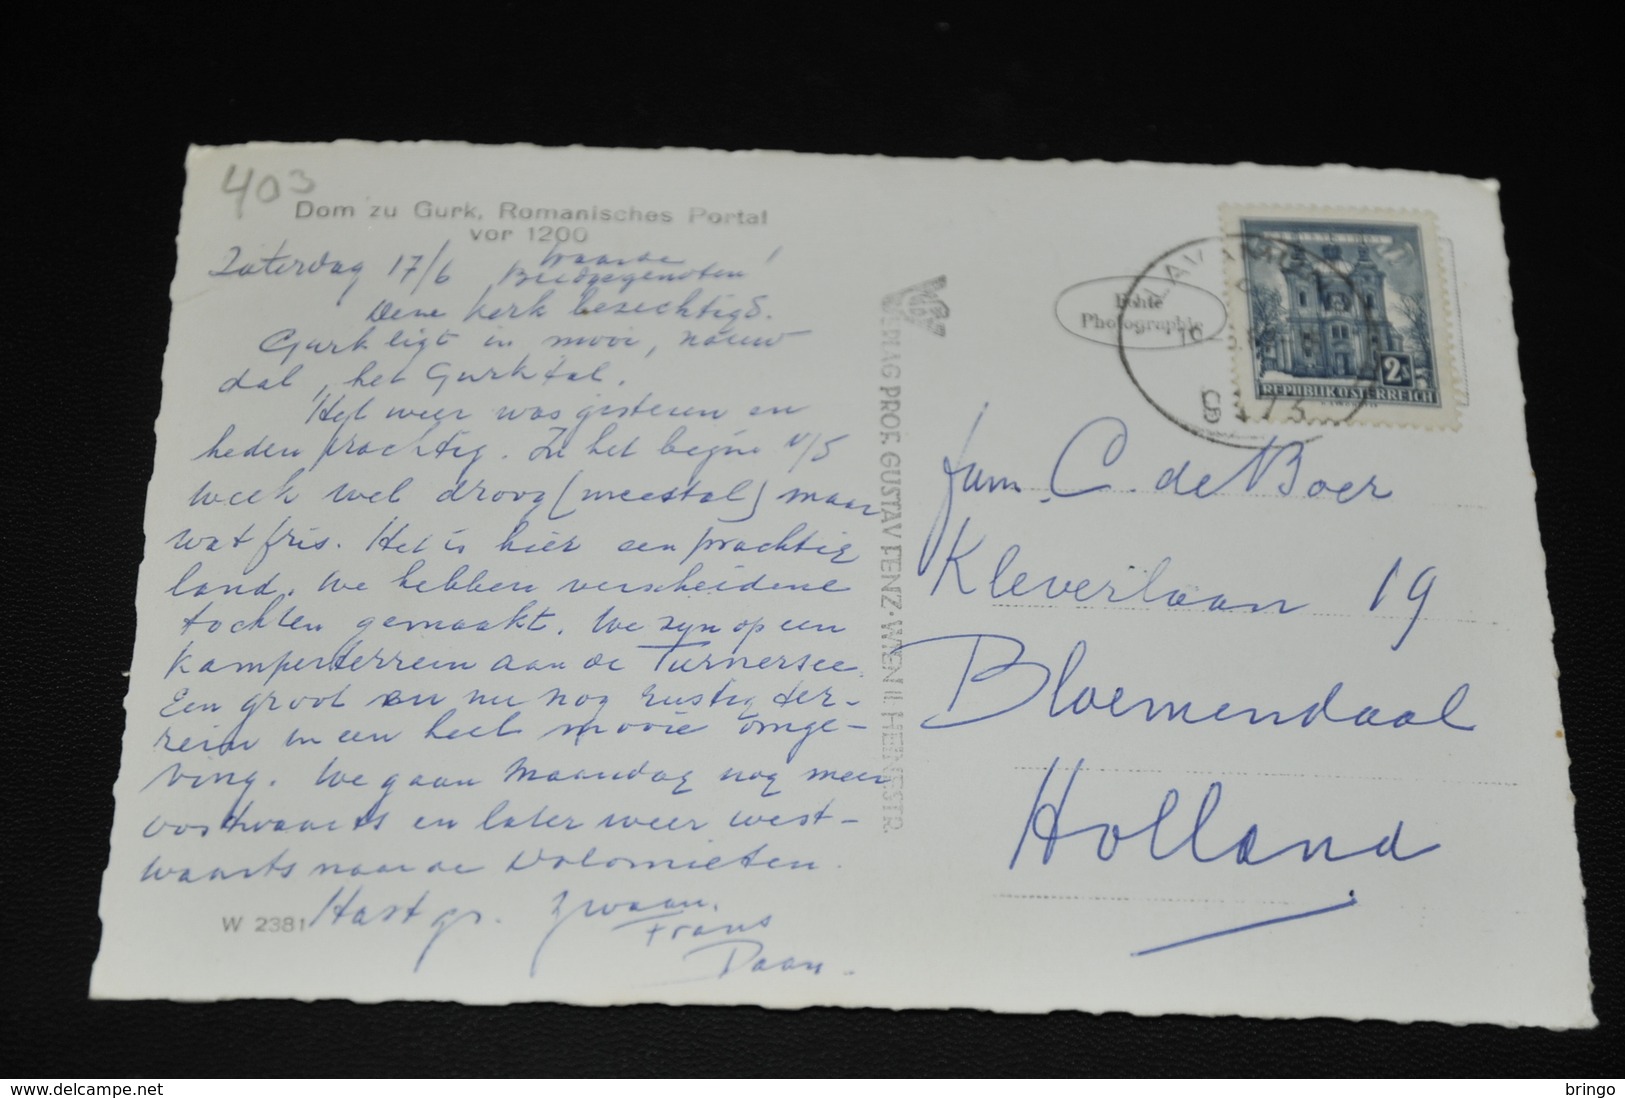 403
Dom zu Gurk, Romanisches Portal
vor 1200
Zaterdag 17/6 Waarde
Bedgegenoten!
Deze kerk bezichtigd.
Gurk ligt in mooi, nauw
dal, het Gurktal.
Het weer was gisteren en
heden prachtig. In het begin v/d
week wel droog (meestal) maar
wat fris. Het is hier een prachtig
land. We hebben verscheidene
tochten gemaakt. We zijn op een
kampeerterrein aan de Turnersee.
Een groot en nu nog rustig ter-
rein in een heel mooie omge-
ving. We gaan Maandag nog meer
oostwaarts en later weer west-
waarts naar de Dolomieten.
Hart gr. Zwaan,
Frans
Daan.
W 2381
VERLAG PROF. GUSTAV FENZ · WIEN II. HEINESTR.
Echte
Photographie
2 S
REPUBLIK ÖSTERREICH
fam. C. de Boer
Kleverlaan 19
Bloemendaal
Holland
bringo